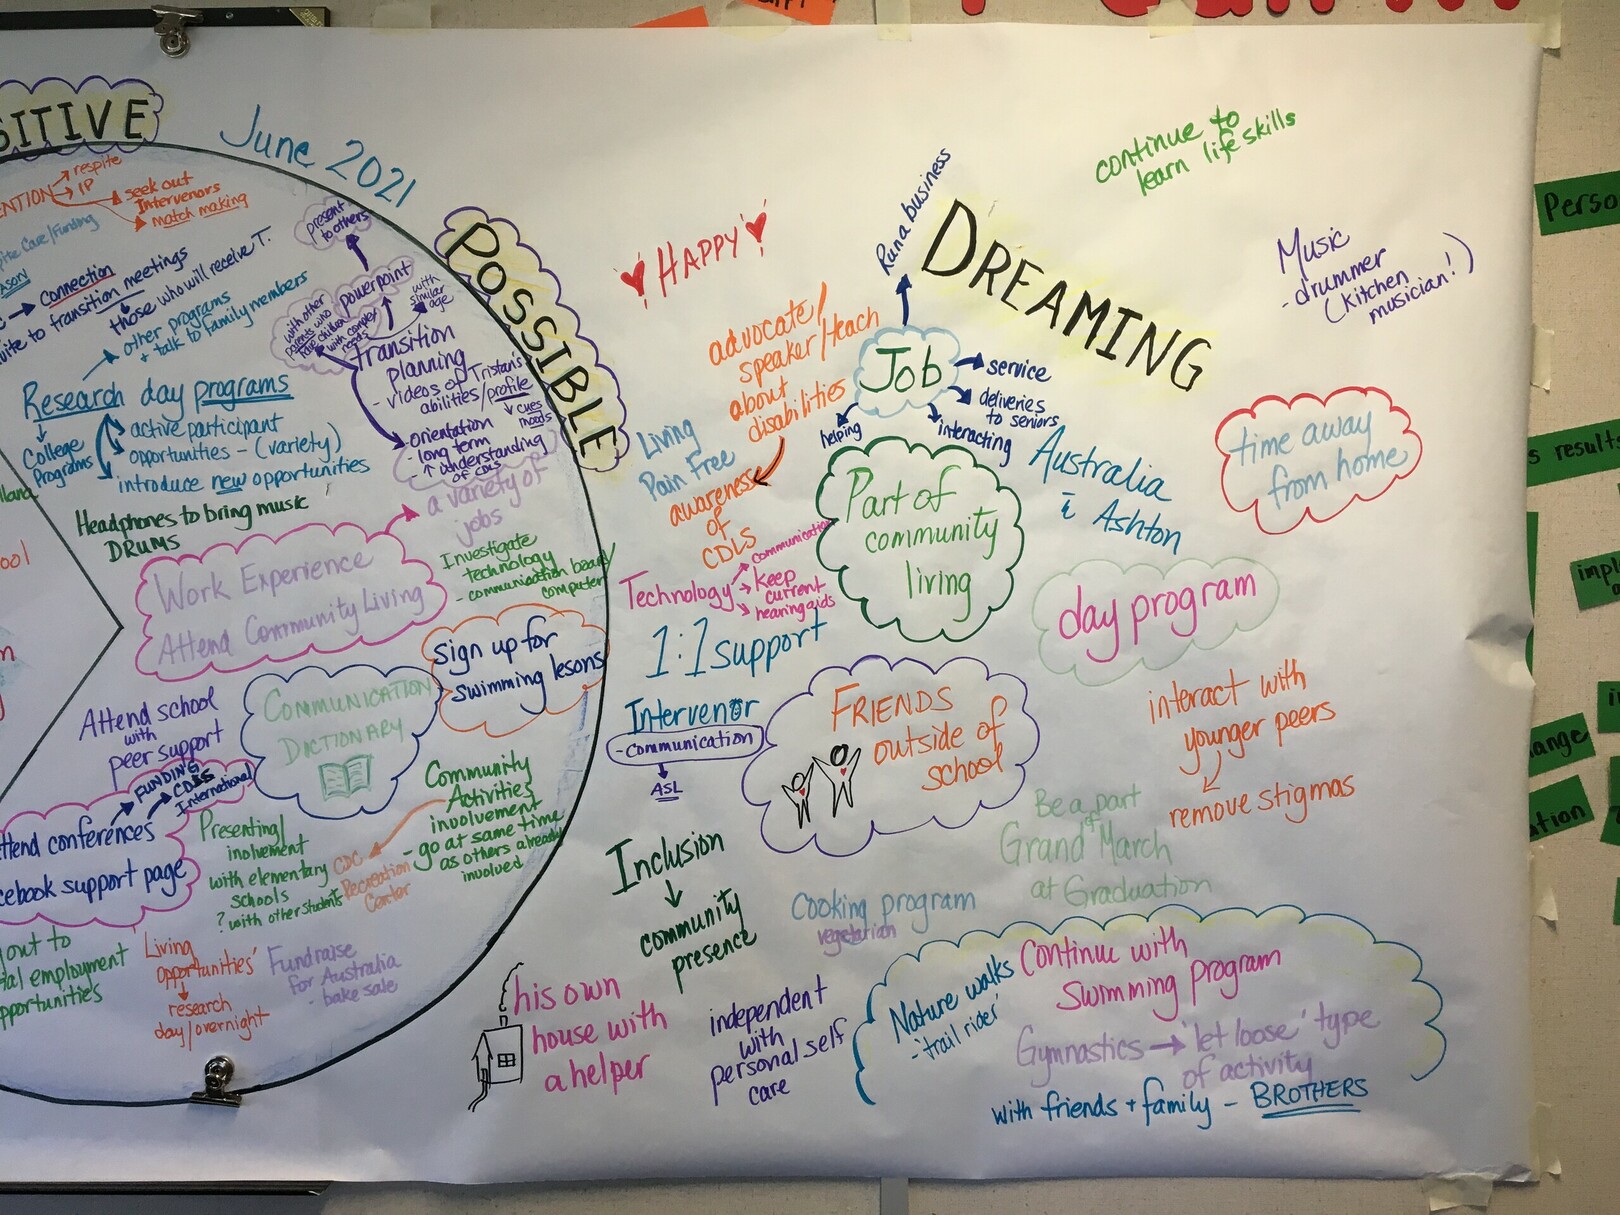 SITIVE
June 2021
POSSIBLE
DREAMING
respite
IP
seek out
Intervenors
match making
Connection
to transition meetings
those who will receive T.
other programs
+ talk to family members
Research day programs
College
Programs
active participant
opportunities - (variety)
introduce new opportunities
present
to others
powerpoint
with
similar
age
with other
parents who
have children
with complex
needs
transition
planning
- videos of Tristan's
abilities/profile
cues
moods
- orientation
- long term
- ↑ understanding
of CDLS
a variety of
jobs
Headphones to bring music
DRUMS
Work Experience
Attend Community Living
Investigate
technology
- communication board
computer
Sign up for
swimming lesons
COMMUNICATION
DICTIONARY
Attend school
with
peer support
FUNDING
CDLS
International
ttend conferences
cebook support page
Presenting/
inolvement
with elementary
schools
? with other students
Community
Activities
involvement
- go at same time
as others already
involved
CDC
Recreation
Center
out to
employment
pportunities
Living
opportunities'
research
day/overnight
Fundraise
for Australia
- bake sale
HAPPY
Run a business
advocate/
speaker/teach
about
disabilities
awareness
of
CDLS
Job
service
deliveries
to seniors
interacting
helping
continue to
learn life skills
Music
- drummer
(kitchen
musician!)
time away
from home
Living
Pain Free
Australia
Ashton
Part of
community
living
Technology
communication
keep
current
hearing aids
day program
1:1 support
Intervenor
- communication
ASL
FRIENDS
outside of
school
interact with
younger peers
remove stigmas
Be a part
of
Grand March
at Graduation
Inclusion
community
presence
Cooking program
vegetarian
his own
house with
a helper
independent
with
personal self
care
Nature walks
- 'trail rider'
Continue with
swimming program
Gymnastics → 'let loose' type
of activity
with friends + family - BROTHERS
Perso
s results
impl
ange
ation